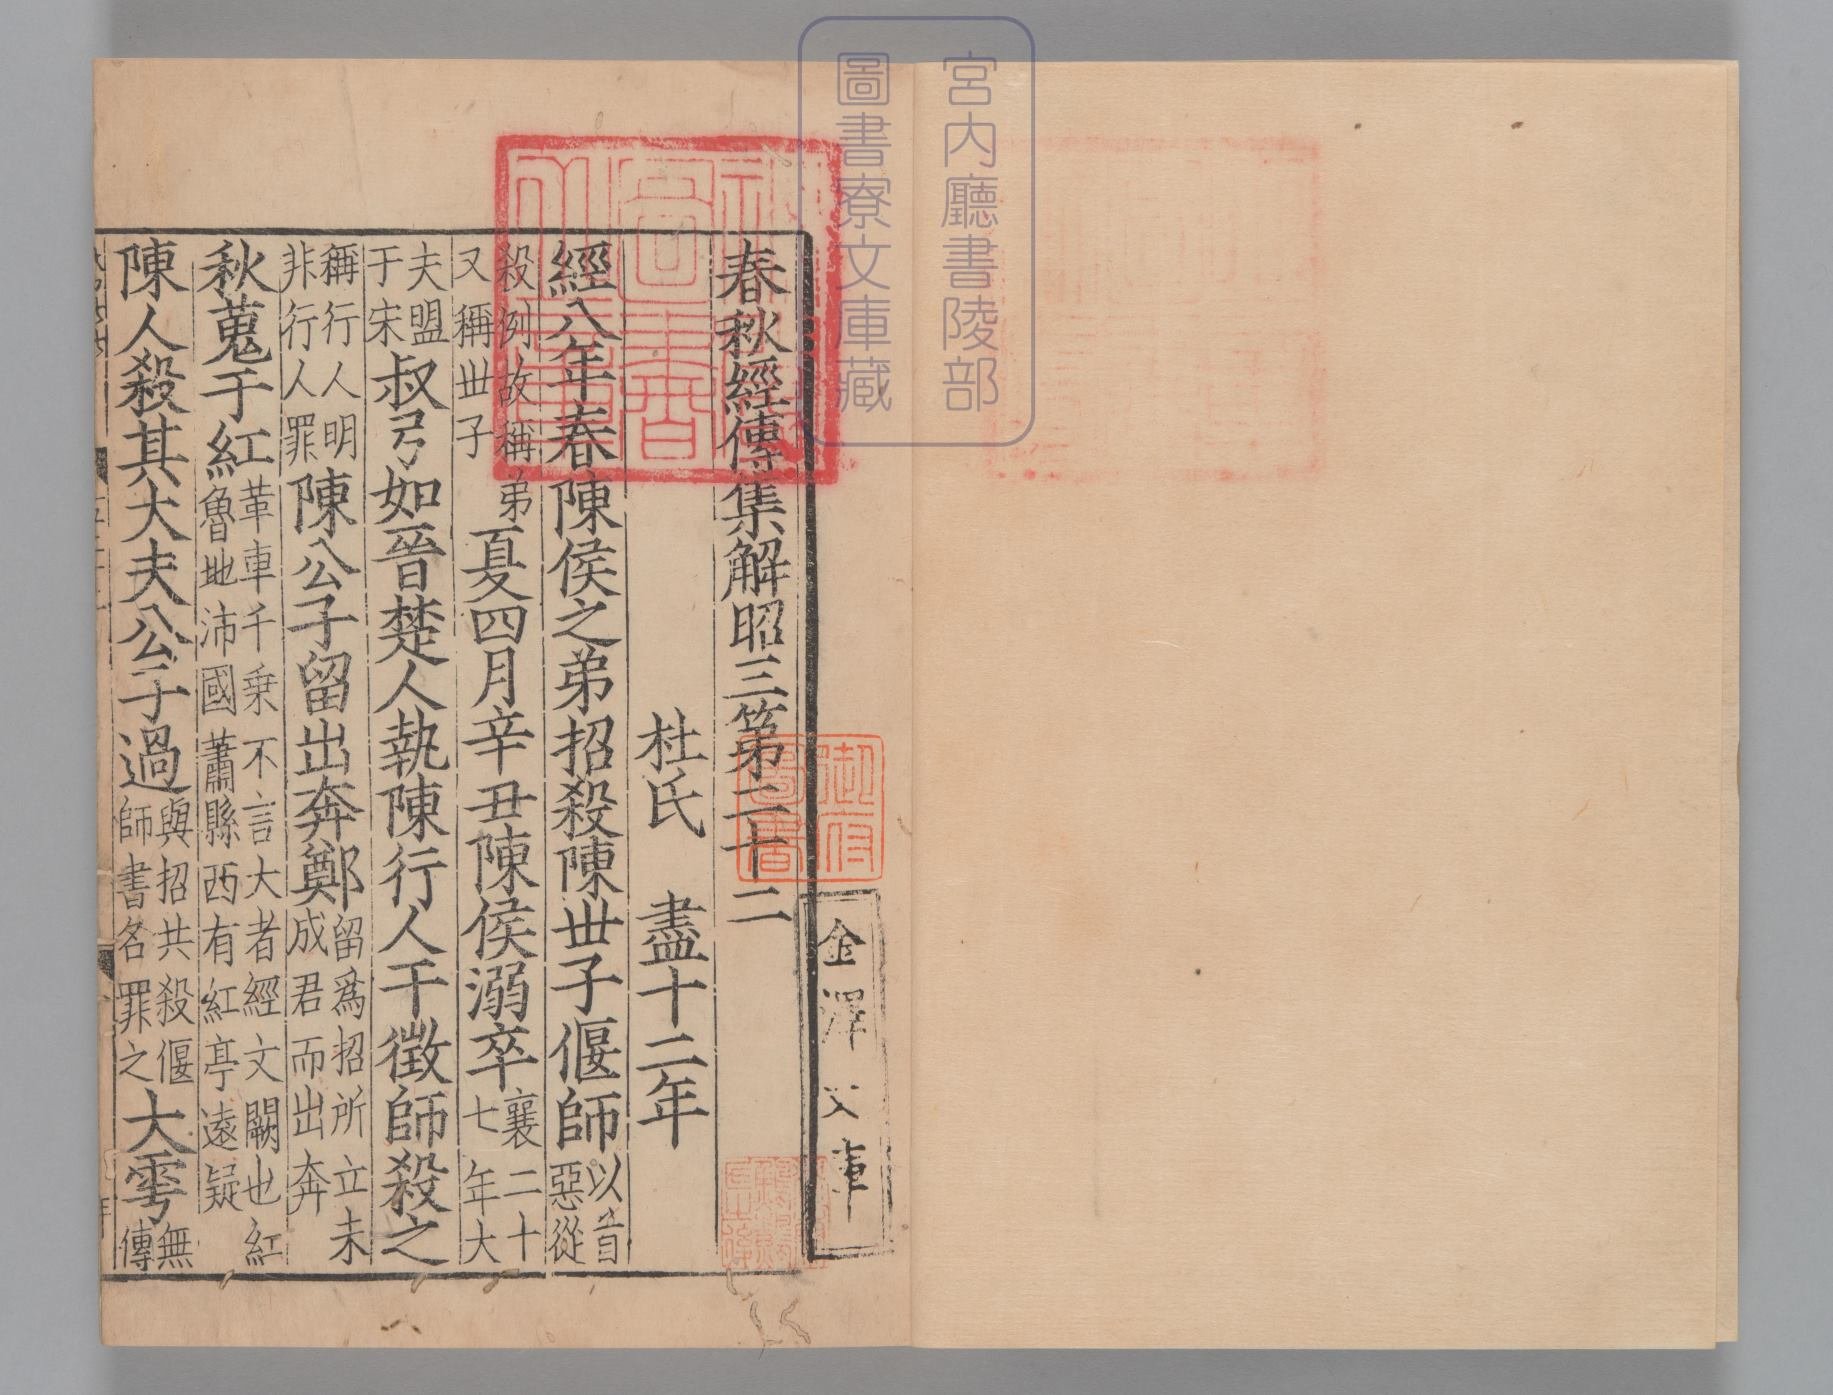 宮内廳書陵部
圖書寮文庫藏
金澤文庫
御府圖書
春秋經傳集解昭三第二十二
杜氏 盡十二年
經八年春陳侯之弟招殺陳丗子偃師以首惡從
殺例故稱弟又稱丗子夏四月辛丑陳侯溺卒襄二十七年大
夫盟于宋叔弓如晉楚人執陳行人干徵師殺之
稱行人明非行人罪陳公子留出奔鄭留爲招所立未成君而出奔
秋蒐于紅革車千乗不言大者經文闕也紅魯地沛國蕭縣西有紅亭遠疑
陳人殺其大夫公子過與招共殺偃師書名罪之大雩無傳